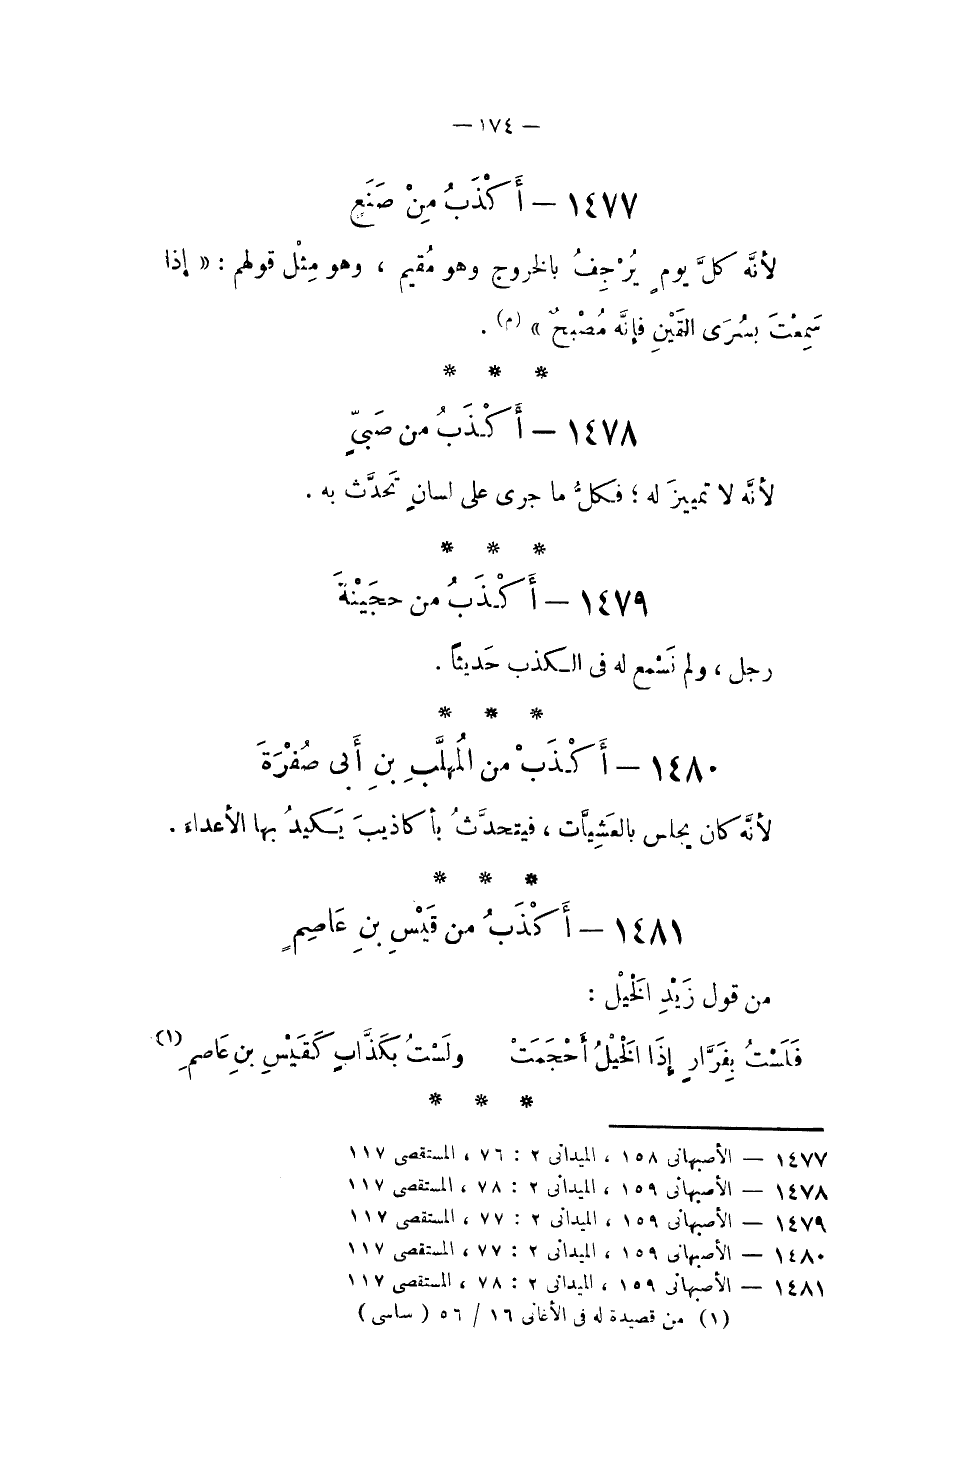 — ١٧٤ —
١٤٧٧ — أَكْذَبُ مِنْ صَنَعٍ
لأنَّه كلَّ يومٍ يُرْجِفُ بالخروج وهو مُقيم ، وهو مِثْل قولهم : « إذا
سَمِعْتَ بسُرَى القَيْنِ فإنَّه مُصْبِحٌ » (م) .
* * *
١٤٧٨ — أَكْذَبُ من صَبيٍّ
لأنَّه لا تمييزَ له ؛ فكلُّ ما جرى على لسانٍ تَحدَّث به .
* * *
١٤٧٩ — أَكْذَبُ من حجَيْنَةَ
رجل ، ولم نَسْمع له فى الكذب حَديثاً .
* * *
١٤٨٠ — أَكْذَبْ من المُهلَّبِ بنِ أَبى صُفْرَةَ
لأنَّه كان يجلس بالعَشِيَّات ، فيتحدَّثُ بأكاذيبَ يَكيدُ بها الأعداءَ .
* * *
١٤٨١ — أَكْذَبُ من قَيْسِ بنِ عَاصِمٍ
من قول زَيْدِ الخَيْل :
فَلَسْتُ بِفَرَّارٍ إِذَا الخَيْلُ أَحْجَمَتْ ولَسْتُ بكَذَّابٍ كَقَيْسِ بنِ عَاصمِ (١)
* * *
١٤٧٧ — الأصبهانى ١٥٨ ، الميدانى ٢ : ٧٦ ، المستقصى ١١٧
١٤٧٨ — الأصبهانى ١٥٩ ، الميدانى ٢ : ٧٨ ، المستقصى ١١٧
١٤٧٩ — الأصبهانى ١٥٩ ، الميدانى ٢ : ٧٧ ، المستقصى ١١٧
١٤٨٠ — الأصبهانى ١٥٩ ، الميدانى ٢ : ٧٧ ، المستقصى ١١٧
١٤٨١ — الأصبهانى ١٥٩ ، الميدانى ٢ : ٧٨ ، المستقصى ١١٧
(١) من قصيدة له فى الأغانى ١٦ / ٥٦ ( ساسى )